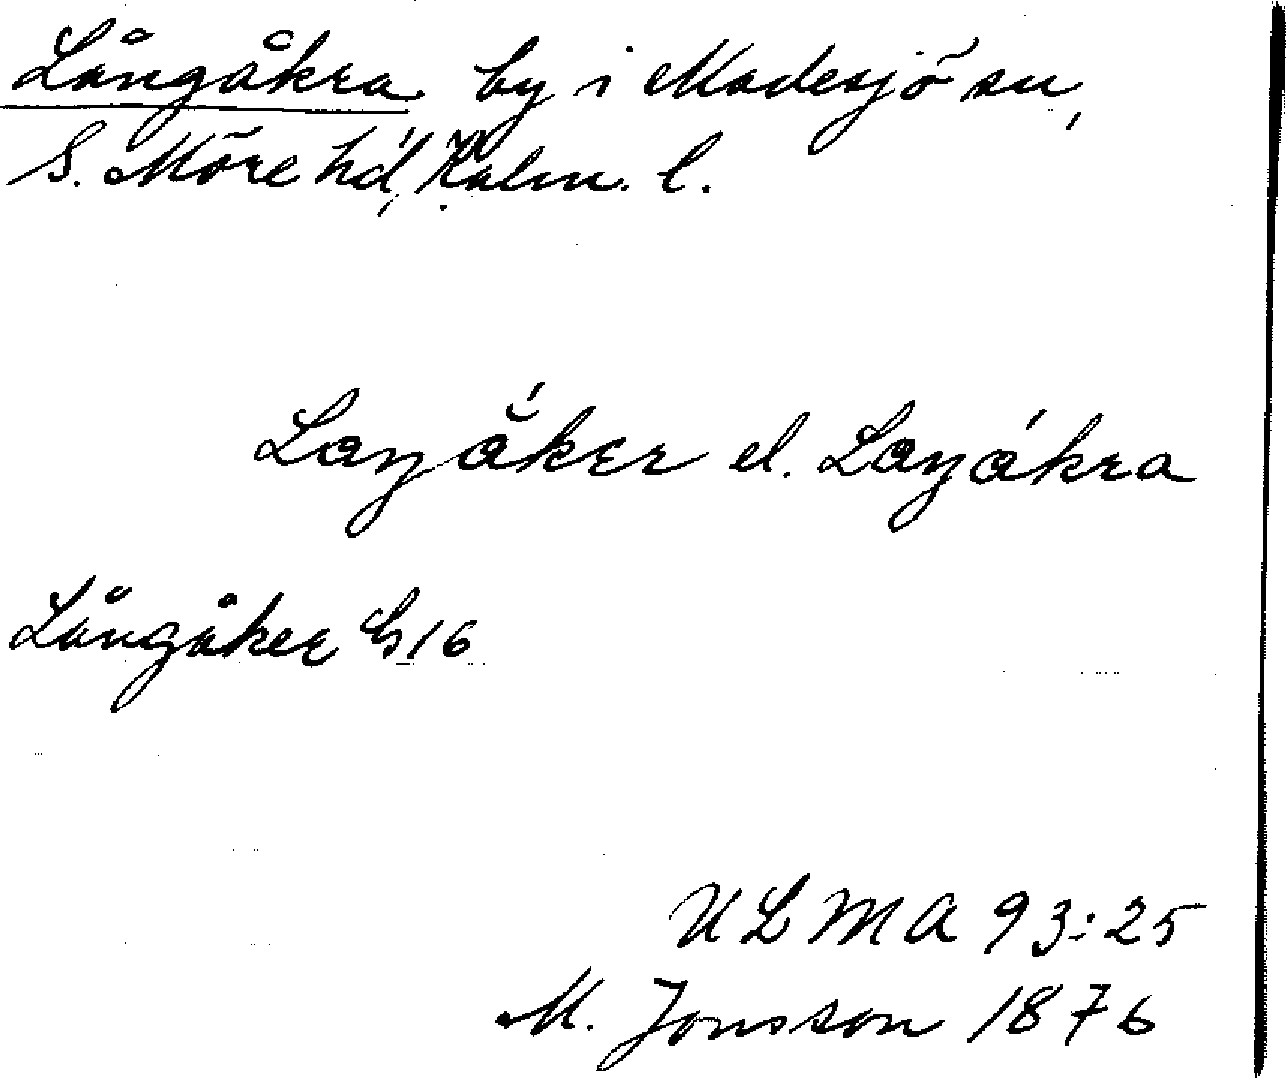 Långåkra, by i Madesjö sn,
S. Möre hd, Kalm. l.
Laŋåker el. Laŋåkra
Långåker G16
ULMA 93:25
M. Jonsson 1876